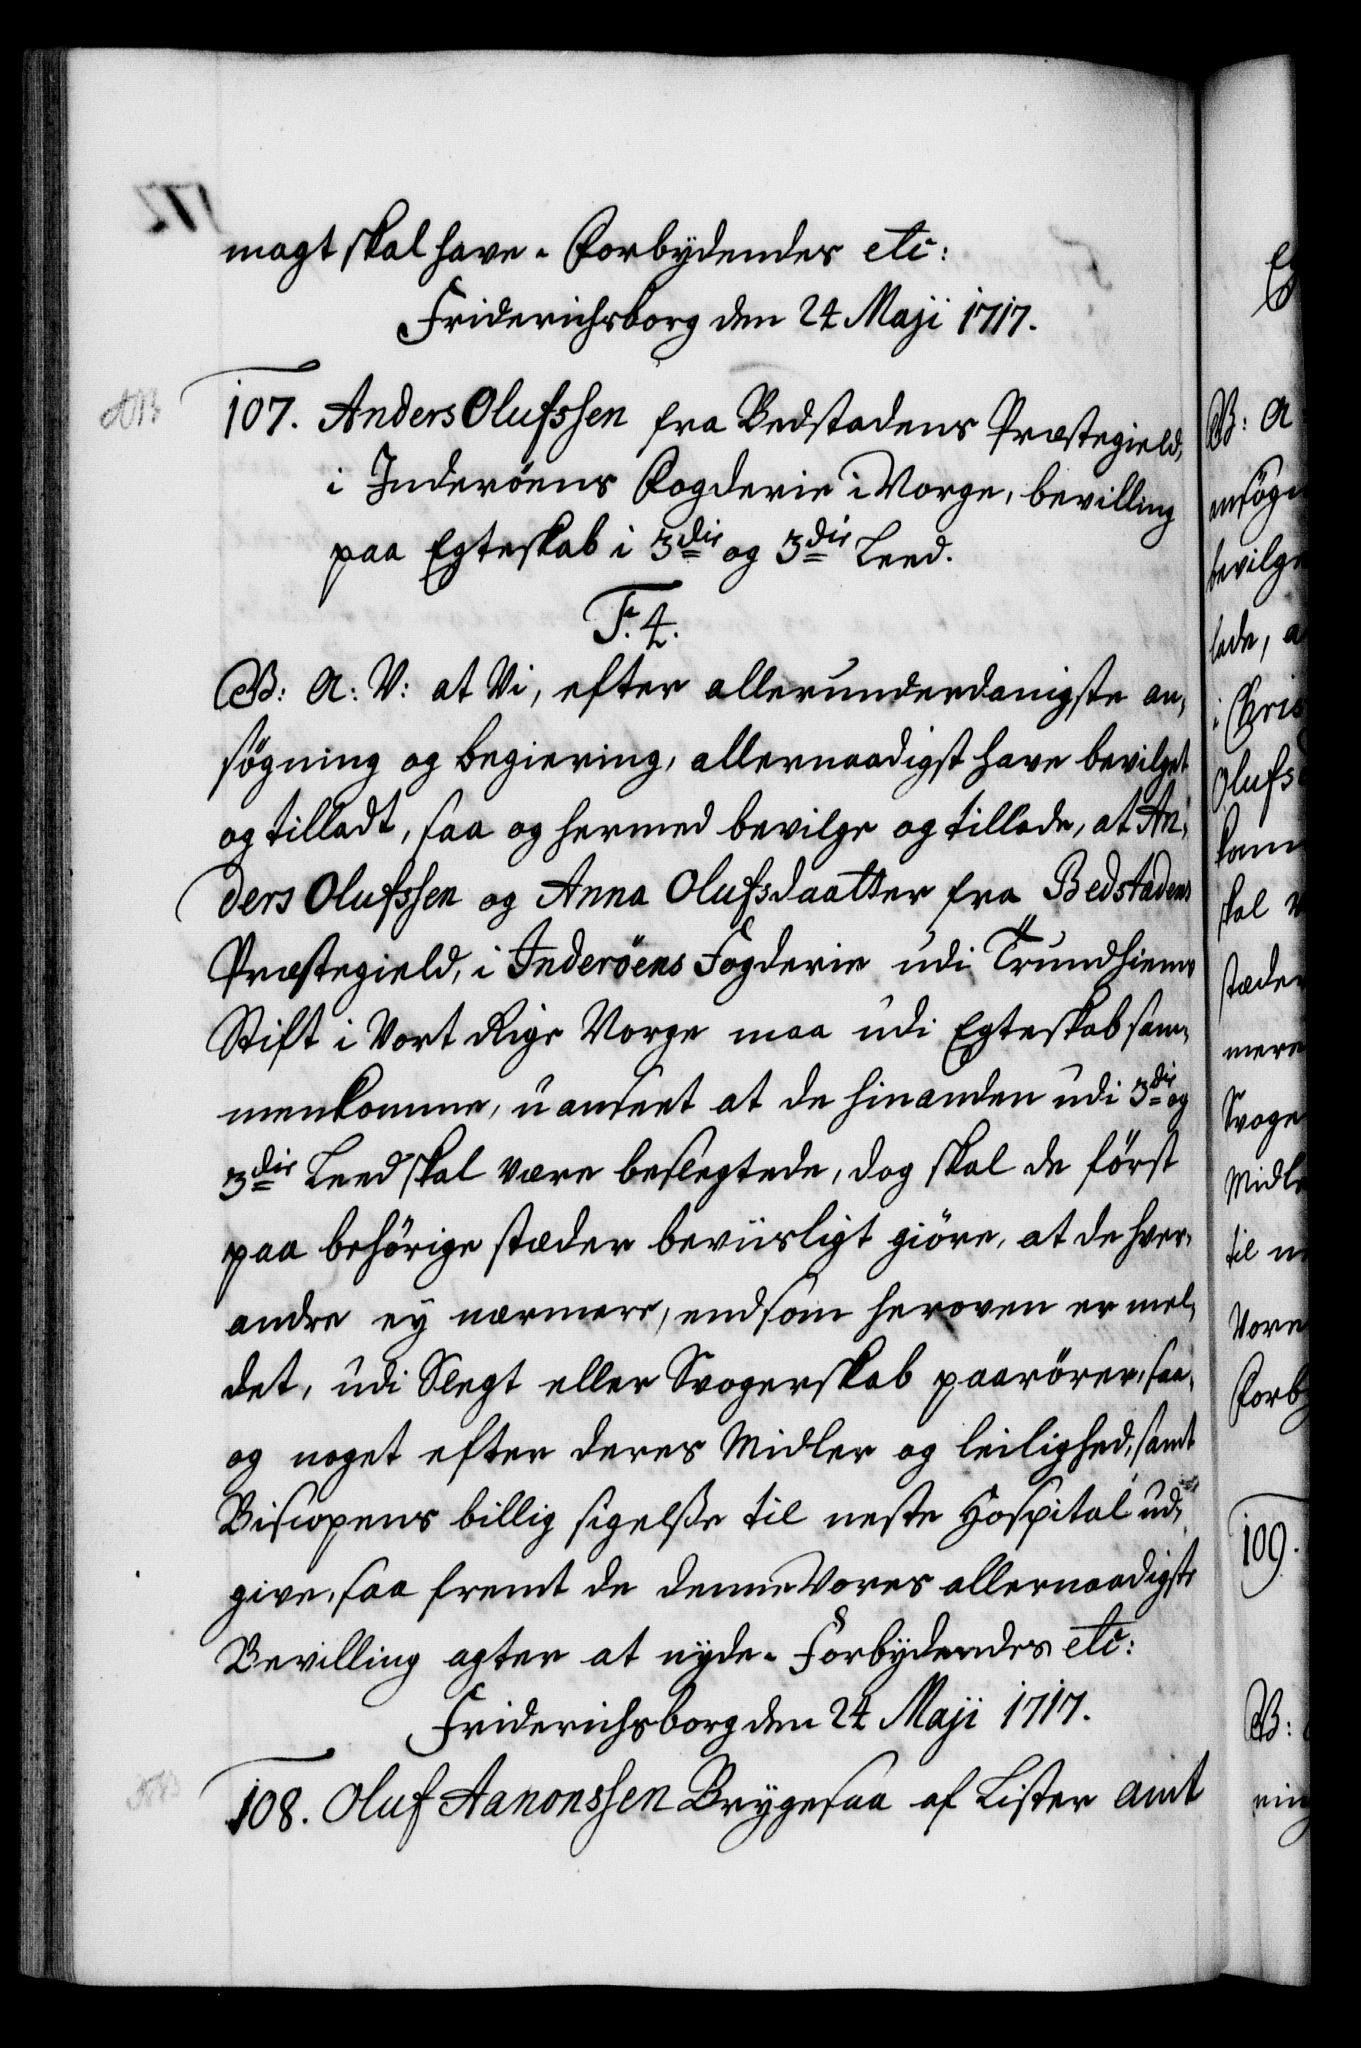 magt skal have. Forbydendes etc:
Friderichsborg den 24 Maji 1717.
107. Anders Olufssen fra Bedstadens Præstegield,
i Inderöens Fogderie i Norge, bevilling
paa Egteskab i 3die og 3die Leed.
F. 4.
G: A: V: at Vi, efter allerunderdanigste an,
søgning og begiering, allernaadigst have bevilget
og tilladt, saa og hermed bevilge og tillade, at An,
ders Olufssen og Anna Olufsdaatter fra Bedstadens
Præstegield, i Inderöens Fogderie udi Trundhiems
Stift i Vort Rige Norge maa udi Egteskab sam,
menkomme, uanseet at de hinanden udi 3die og
3die Leed skal være beslegtede, dog skal de först
paa behörige stæder beviisligt giöre, at de hver,
andre ey nærmere, end som heroven er mel,
det, udi Slegt eller Svogerskab paarörer, saa,
og noget efter deres Midler og leilighed, samt
Biscopens billig sigelße til neste Hospital ud,
give, saa fremt de denne Vores allernaadigste
Bevilling agter at nyde. Forbydendes etc:
Friderichsborg den 24 Maji 1717.
108. Oluf Aanonssen Brygesaa af Lister amt
B: A
ansögn
bevilge
lade, a
i Chris
Olufs
kom
skal
stæder
mere
Svoge
Midle
til n
Vore
Forby
109.